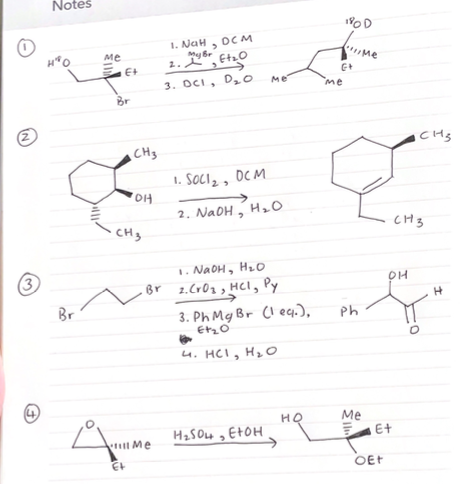 Notes
1
H¹⁸O
Me
Et
Br
1. NaH, DCM
2. MgBr, Et₂O
3. DCl, D₂O
¹⁸OD
Me
Et
Me
Me
2
CH₃
OH
CH₃
1. SOCl₂, DCM
2. NaOH, H₂O
CH₃
CH₃
3
Br
Br
1. NaOH, H₂O
2. CrO₃, HCl, Py
3. PhMgBr (1 eq.),
Et₂O
4. HCl, H₂O
Ph
OH
H
O
4
O
Me
Et
H₂SO₄, EtOH
HO
Me
Et
OEt